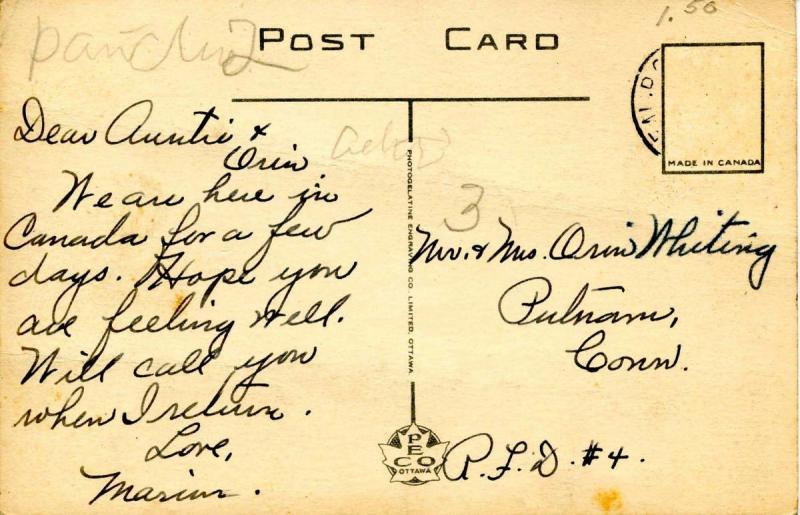 1.50
POST CARD
MADE IN CANADA
Dear Auntie &
Orin
We are here in
Canada for a few
days. Hope you
are feeling well.
Will call you
when I return.
Love,
Marion.
PHOTOGELATINE ENGRAVING CO. LIMITED, OTTAWA
PECO
OTTAWA
3
Mr. & Mrs. Orin Whiting
Putnam,
Conn.
R.F.D. #4.